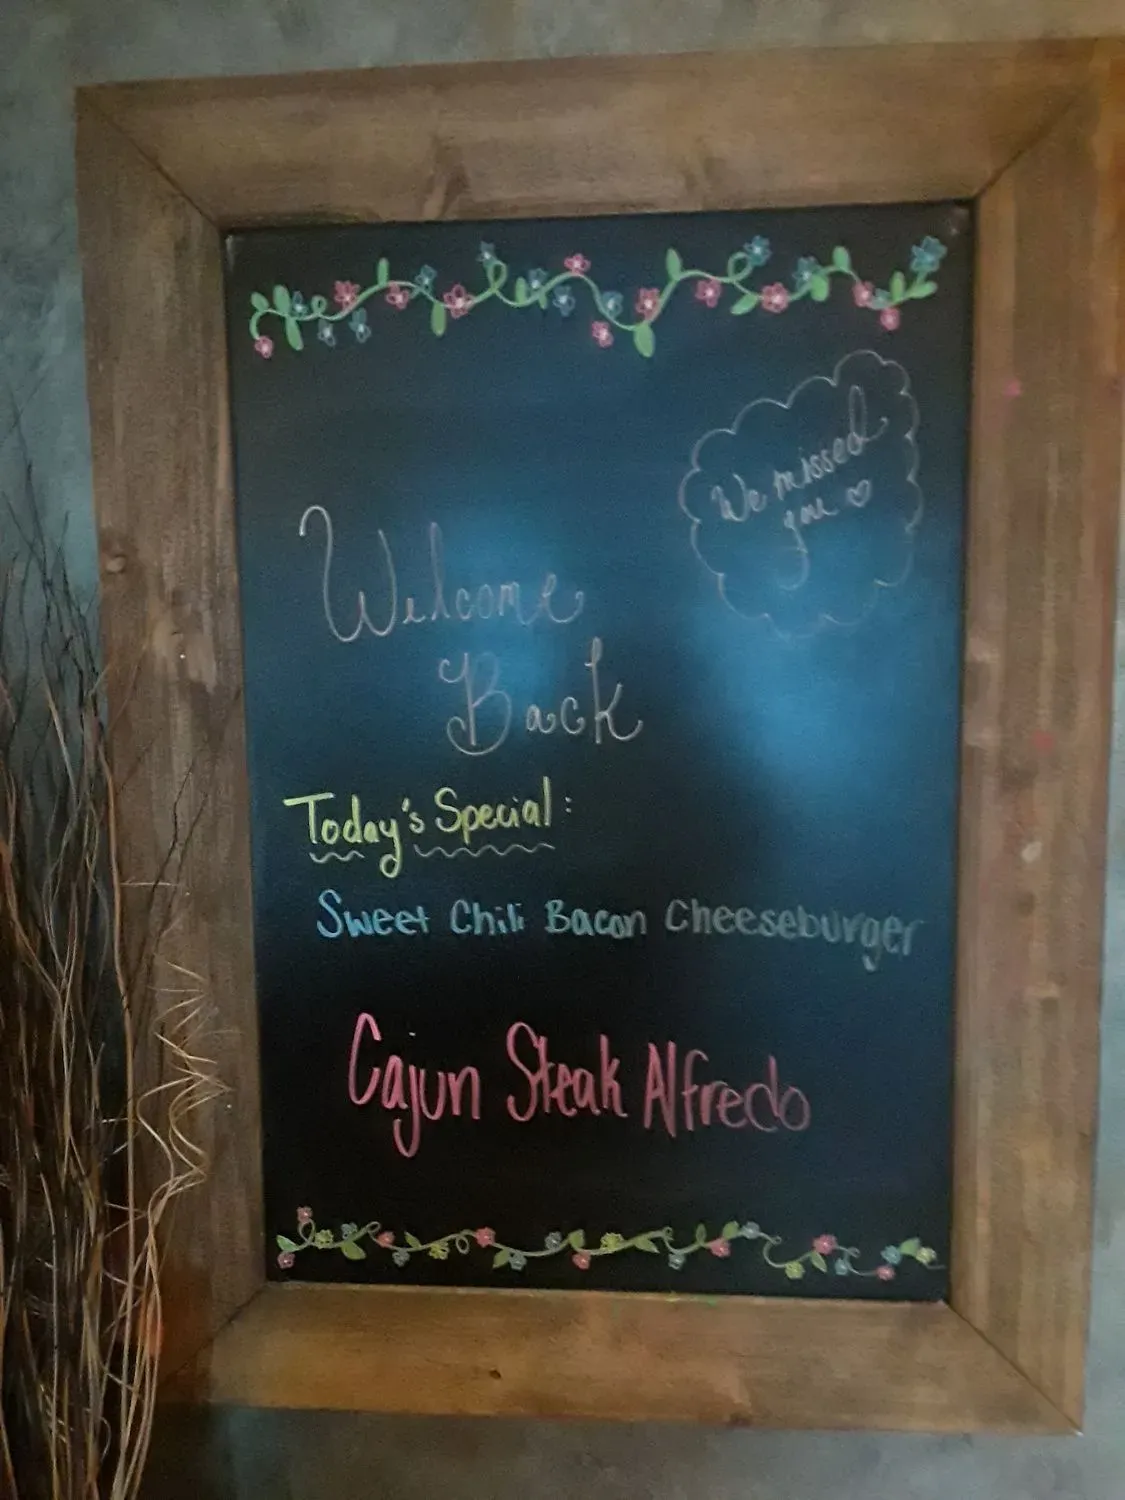 We missed
you ♡
Welcome
Back
Today's Special:
Sweet Chili Bacon Cheeseburger
Cajun Steak Alfredo